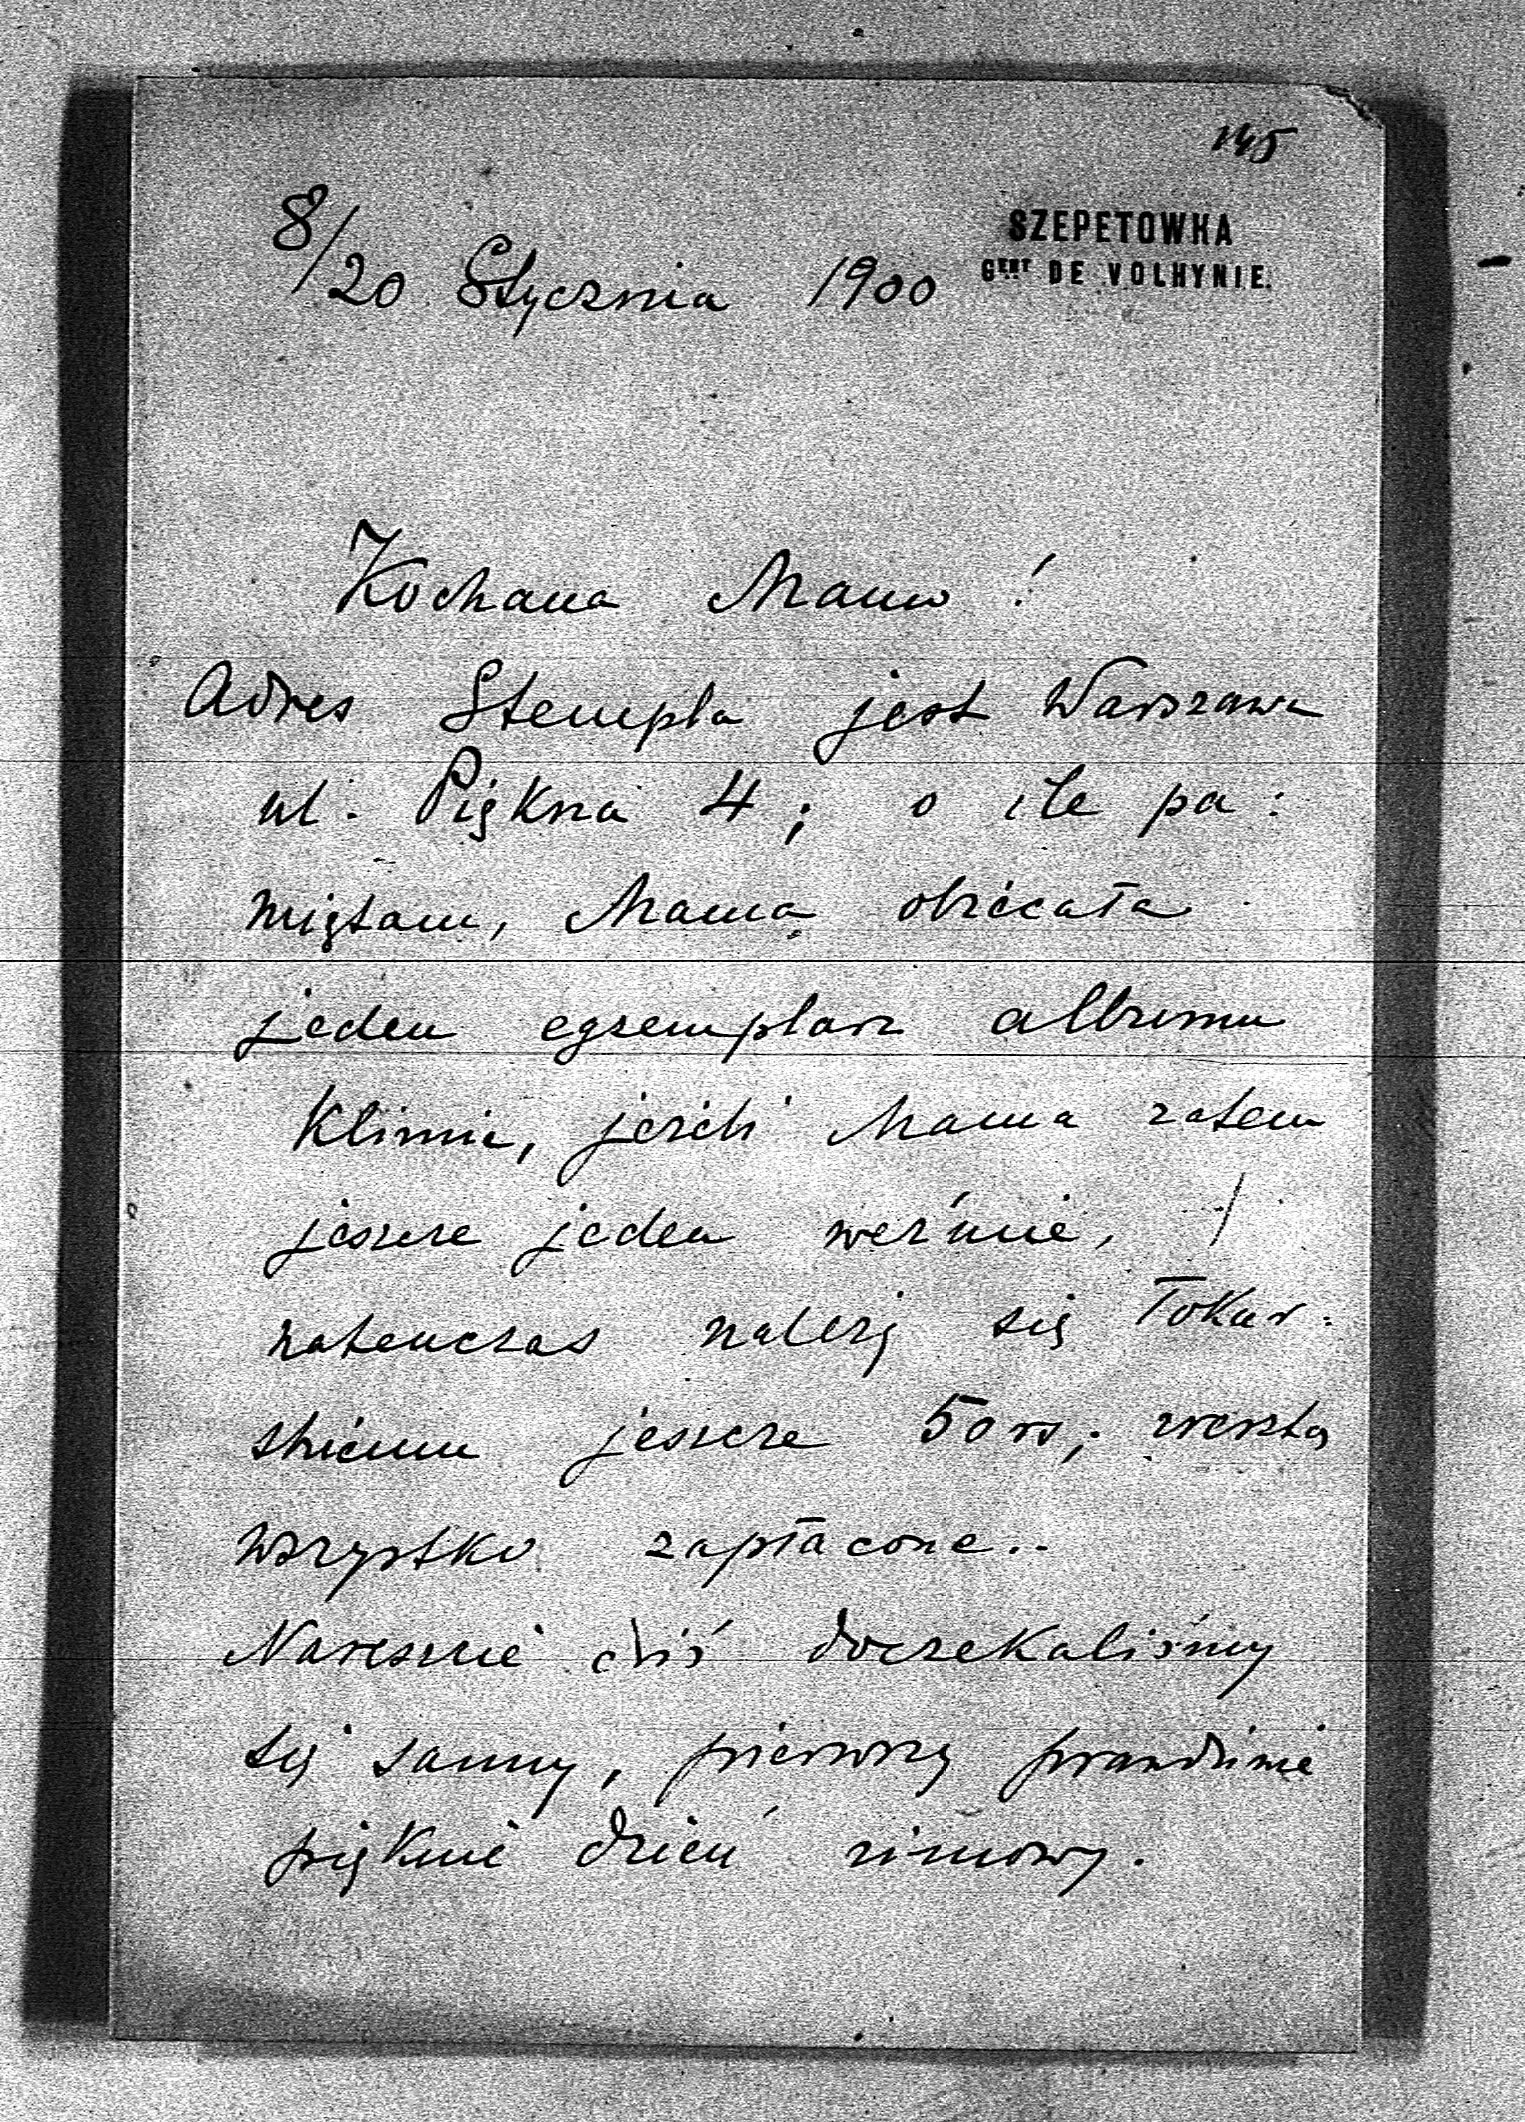 145
SZEPETOWKA
Gert DE VOLHYNIE.
8/20 Stycznia 1900
Kochana Mamo!
Adres Stempla jest Warszawa
ul. Piękna 4; o ile pa:
miętam, Mama obiecała
jeden egzemplarz albumu
Klimie, jeżeli Mama zatem
jeszcze jeden weźmie,
natenczas należy się Tokar:
skiemu jeszcze 50 rs; zresztą
wszystko zapłacone..
Nareszcie dziś doczekaliśmy
się sanny, pierwszy prawdziwie
pięknie dzień zimowy.